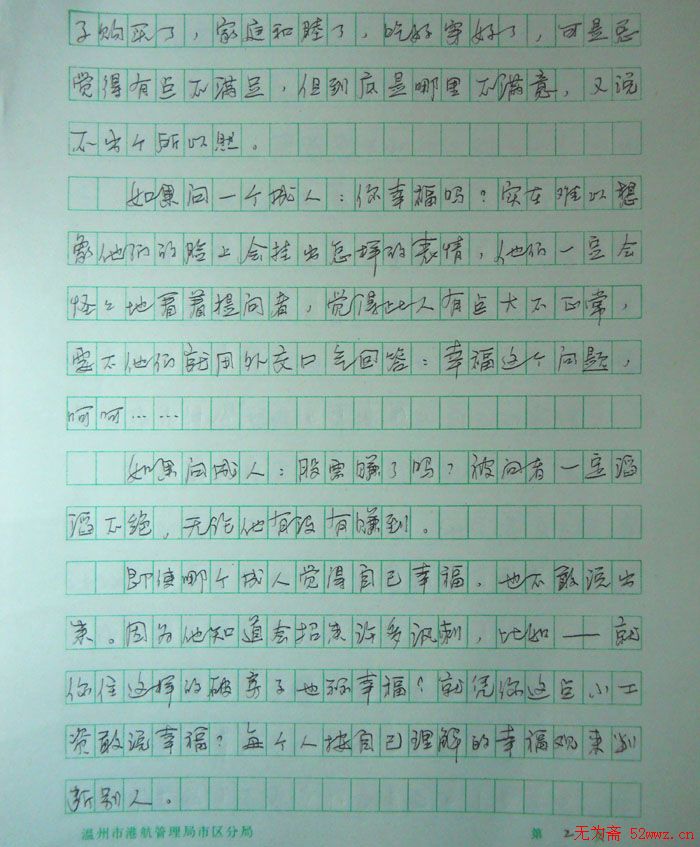 子购买了，家庭和睦了，吃好穿好了，可是总
觉得有点不满足，但到底是哪里不满意，又说
不出个所以然。
如果问一个成人：你幸福吗？实在难以想
象他们的脸上会挂出怎样的表情，他们一定会
怪怪地看着提问者，觉得此人有点大不正常，
要不他们就用外交口气回答：幸福这个问题，
呵呵……
如果问成人：股票赚了吗？被问者一定滔
滔不绝，无论他有没有赚到。
即使哪个成人觉得自己幸福，也不敢说出
来。因为他知道会招来许多讽刺，比如——就
你住这样的破房子也称幸福？就凭你这点小工
资敢说幸福？每个人按自己理解的幸福观来判
断别人。
温州市港航管理局市区分局 第 2 页
无为斋 52wwz.cn